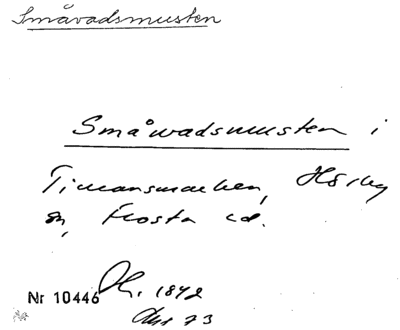 Småvadsmusten
Småwadsmusten i
Timansmarken, Hörby
sn, Frosta hd.
Nr 10446 1842
73